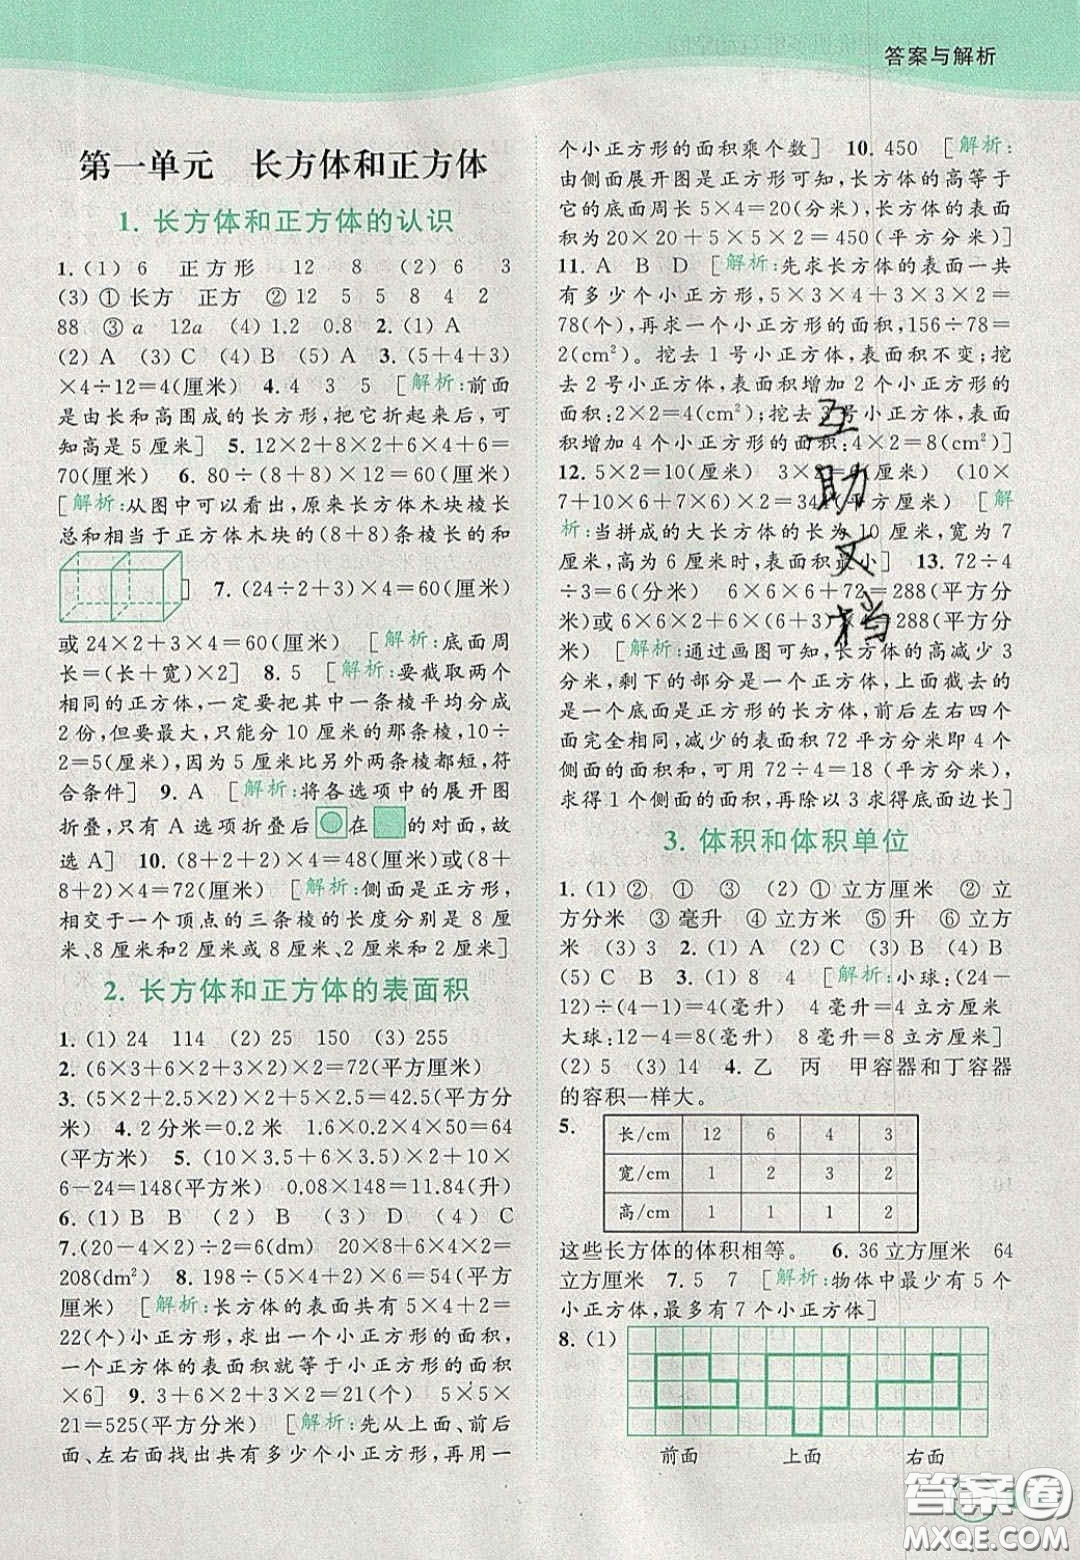 答案与解析
第一单元 长方体和正方体
1. 长方体和正方体的认识
1.(1)6 正方形 12 8 (2)6 3
(3)①长方 正方 ②12 5 5 8 4 2
88 ③a 12a (4)1.2 0.8 2.(1)A
(2)A (3)C (4)B (5)A 3.(5+4+3)
×4÷12=4(厘米) 4.4 3 5 [解析:前面
是由长和高围成的长方形,把它折起来后,可
知高是5厘米] 5.12×2+8×2+6×4+6=
70(厘米) 6.80÷(8+8)×12=60(厘米)
[解析:从图中可以看出,原来长方体木块棱长
总和相当于正方体木块的(8+8)条棱长的和
] 7.(24÷2+3)×4=60(厘米)
或24×2+3×4=60(厘米) [解析:底面周
长=(长+宽)×2] 8.5 [解析:要截取两个
相同的正方体,一定要把其中一条棱平均分成
2份,要最大,只能分10厘米的那条棱,10÷
2=5(厘米),因为5厘米比另外两条棱都短,符
合条件] 9.A [解析:将各选项中的展开图
折叠,只有A选项折叠后在的对面,故
选A] 10.(8+2+2)×4=48(厘米)或(8
+8+2)×4=72(厘米) [解析:侧面是正方形,
相交于一个顶点的三条棱的长度分别是8厘
米、8厘米和2厘米或8厘米、2厘米和2厘米]
2. 长方体和正方体的表面积
1.(1)24 114 (2)25 150 (3)255
2.(6×3+6×2+3×2)×2=72(平方厘米)
3.(5×2+2.5×2)×2+5×2.5=42.5(平方分
米) 4.2分米=0.2米 1.6×0.2×4×50=64
(平方米) 5.(10×3.5+6×3.5)×2+10×
6-24=148(平方米) 0.08×148=11.84(升)
6.(1)B B (2)B (3)D (4)C
7.(20-4×2)÷2=6(dm) 20×8+6×4×2=
208(dm²) 8.198÷(5×4×2+4×4×2)×6=54(平方
厘米) [解析:长方体的表面共有5×4+2=
22(个)小正方形,求出一个小正方形的面积,
一个正方体的表面积就等于小正方形的面积
×6] 9.3+6×2+3×2=21(个) 5×5×
21=525(平方分米) [解析:先从上面、前后
面、左右面找出共有多少个小正方形,再用一
个小正方形的面积乘个数] 10.450 [解析:
由侧面展开图是正方形可知,长方体的高等于
它的底面周长5×4=20(分米),长方体的表面
积为20×20+5×5×2=450(平方分米)]
11.A B D [解析:先求长方体的表面一共
有多少个小正方形,5×3×4+3×3×2=
78(个),再求一个小正方形的面积,156÷78=
2(cm²)。挖去1号小正方体,表面积不变;挖
去2号小正方体,表面积增加2个小正方形的
面积:2×2=4(cm²);挖去3号小正方体,表面
积增加4个小正方形的面积:4×2=8(cm²)]
12.5×2=10(厘米) 3×2=6(厘米) (10×
7+10×6+7×6)×2=344(平方厘米) [解
析:当拼成的大长方体的长为10厘米,宽为7
厘米,高为6厘米时,表面积最小] 13.72÷4
÷3=6(分米) 6×6×6+72=288(平方分
米)或6×6×2+6×(6+3)×4=288(平方分
米) [解析:通过画图可知,长方体的高减少3
分米,剩下的部分是一个正方体,上面截去的
是一个底面是正方形的长方体,前后左右四个
面完全相同,减少的表面积72平方分米即4个
侧面的面积和,可用72÷4=18(平方分米),
求得1个侧面的面积,再除以3求得底面边长]
3. 体积和体积单位
1.(1)② ① ③ (2)①立方厘米 ②立
方分米 ③毫升 ④立方米 ⑤升 ⑥立方
米 (3)3 2.(1)A (2)C (3)A (4)B
(5)C B 3.(1)8 4 [解析:小球:(24-
12)÷(4-1)=4(毫升) 4毫升=4立方厘米
大球:12-4=8(毫升) 8毫升=8立方厘米]
(2)5 (3)14 4.乙 丙 甲容器和丁容器
的容积一样大。
5.
长/cm 12 6 4 3
宽/cm 1 2 3 2
高/cm 1 1 1 2
这些长方体的体积相等。 6.36立方厘米 64
立方厘米 7.5 7 [解析:物体中最少有5个
小正方体,最多有7个小正方体]
8.(1)
前面 上面 右面
互助文档
答案圈
MXQE.COM